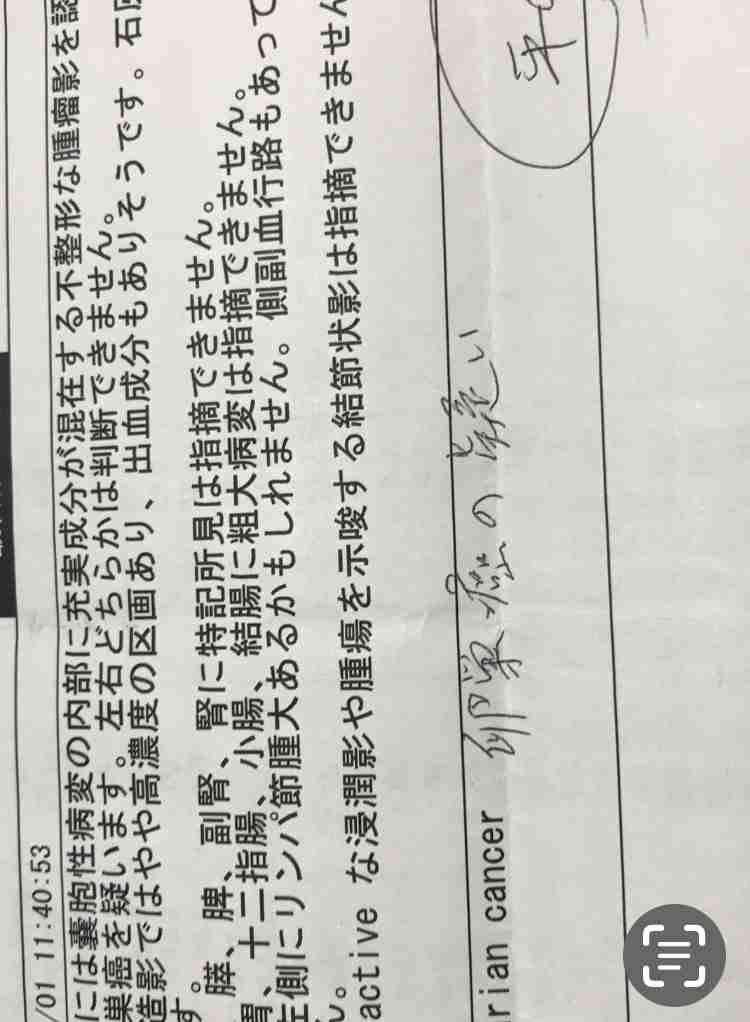 /01 11:40:53
には嚢胞性病変の内部に充実成分が混在する不整形な腫瘤影を認
巣癌を疑います。左右どちらかは判断できません。
造影ではやや高濃度の区画あり、出血成分もありそうです。石灰
す。
膵、脾、副腎、腎に特記所見は指摘できません。
胃、十二指腸、小腸、結腸に粗大病変は指摘できません。
左側にリンパ節腫大あるかもしれません。側副血行路もあって
ん。
active な浸潤影や腫瘍を示唆する結節状影は指摘できません
rian cancer 卵巣癌の疑い